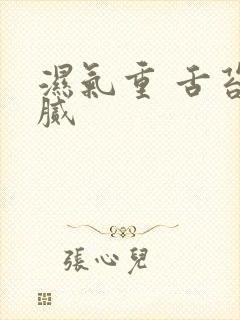 濕氣重 舌苔
膩
張心兒